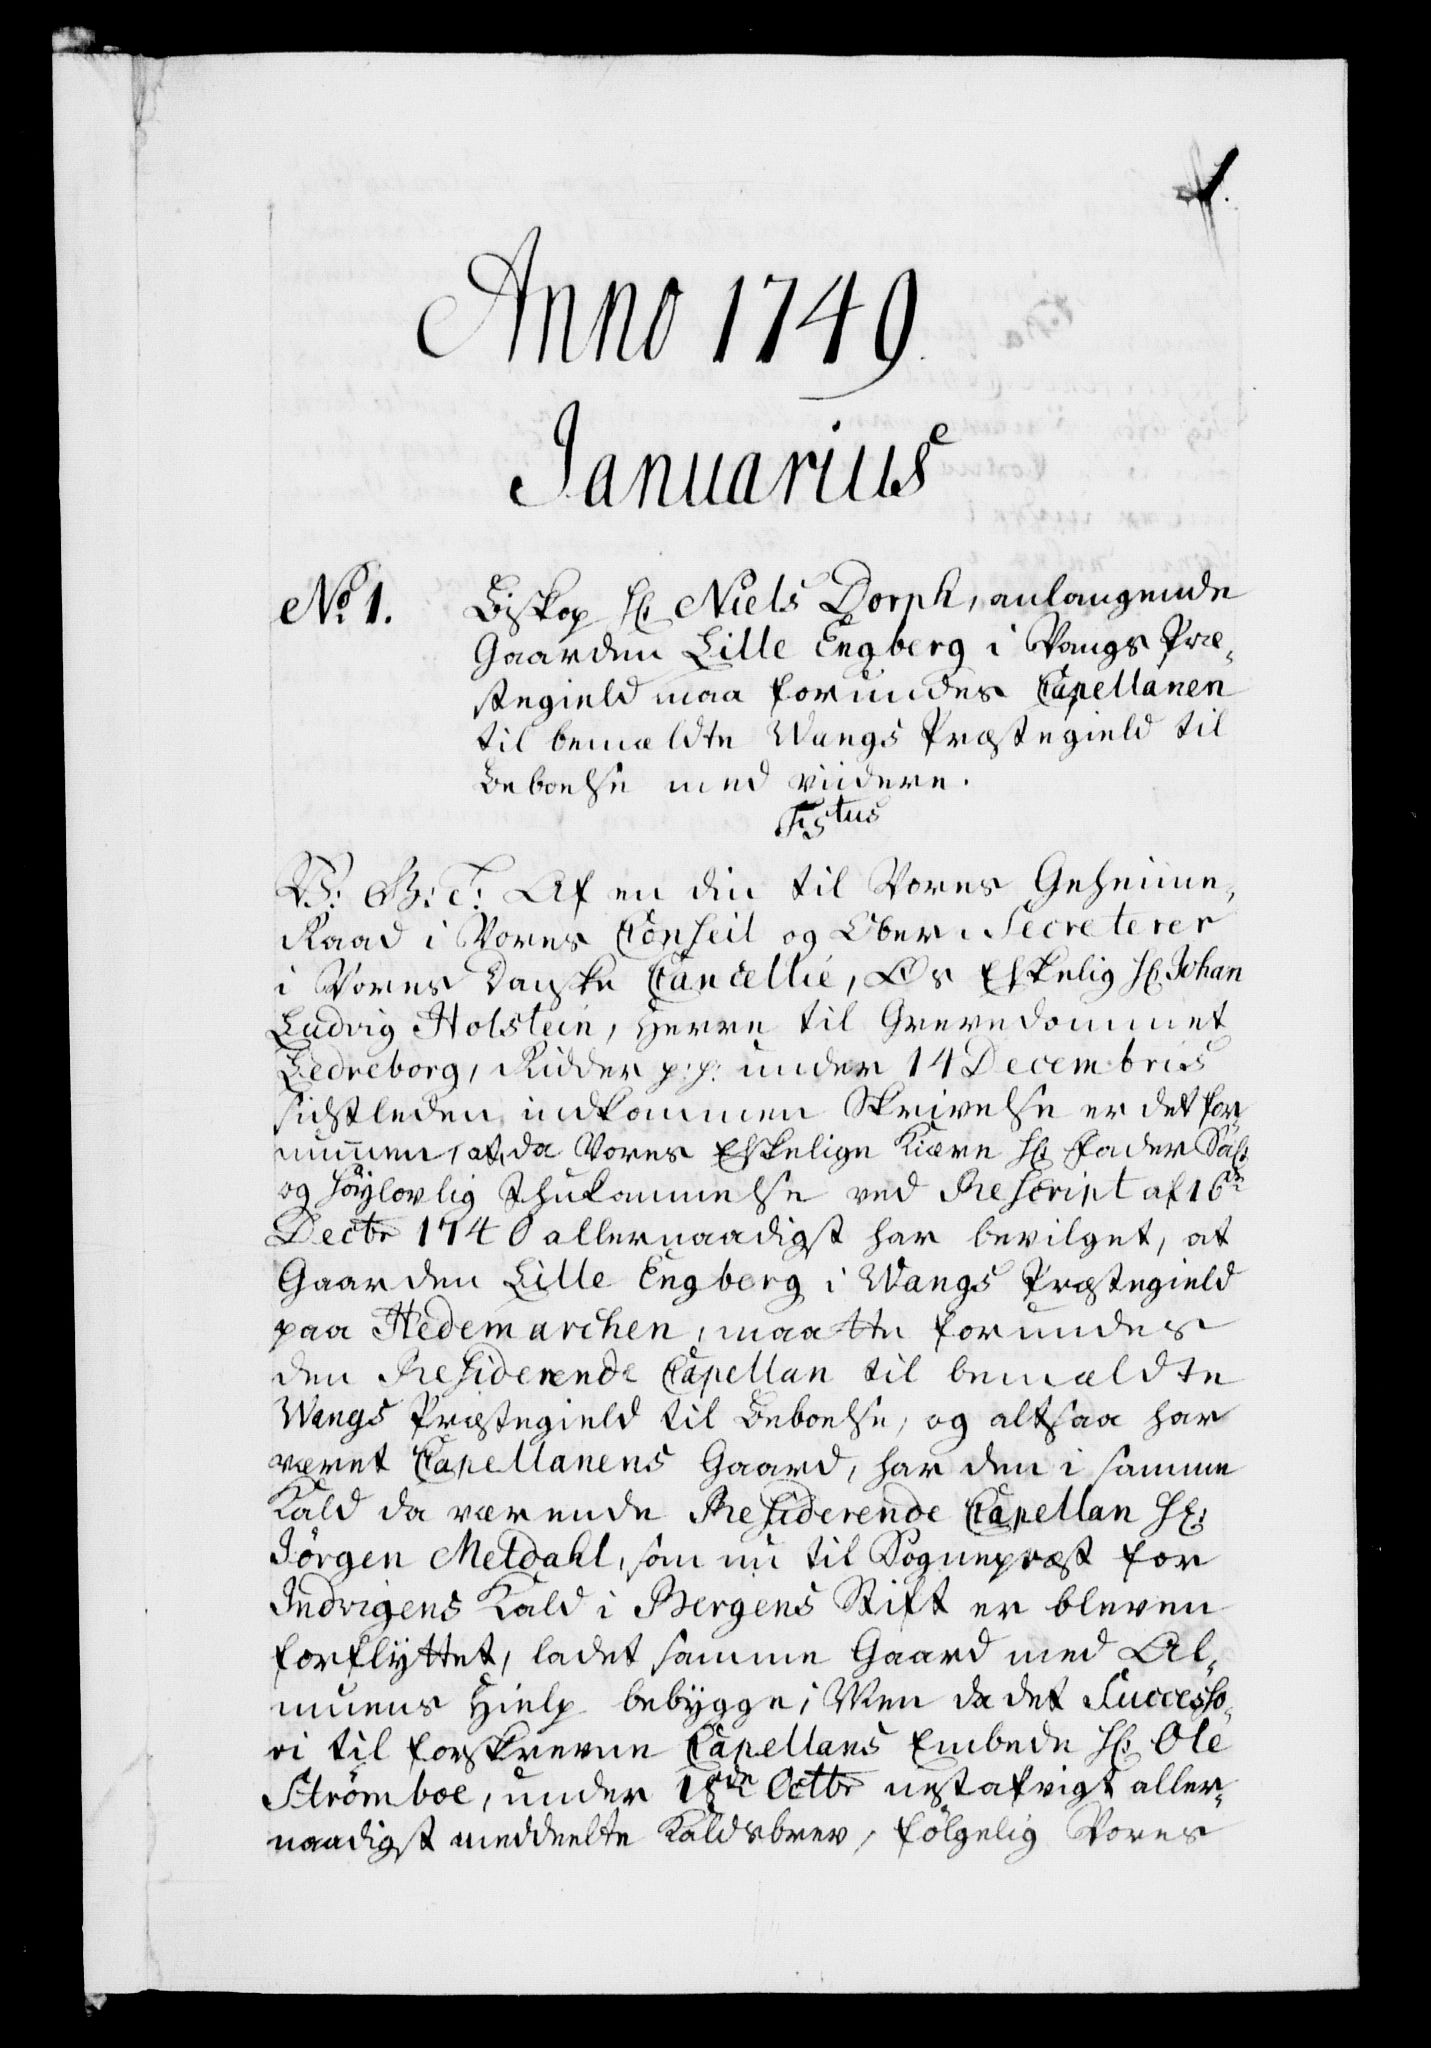 1.
Anno 1749.
Januarius
No. 1.
Biskop Hr: Niels Dorph, anlangende
Gaarden Lille Engberg i Vangs Præ-
stegield maa forundes Capellanen
til bemældte Wangs Præstegield til
Beboelse med viidere.
F: 5tus
V: G: T: Af en din til Vores Geheime-
Raad i Vores Conseil og Ober-Secreterer
i Vores Danske Cancellie, Os Elskelig Hr. Johan
Ludvig Holstein, Herre til Grevedommet
Ledreborg, Ridder p: p: under 14 Decembris
sidstleden indkommen Skrivelse er det for-
nummen, at, da Vores Elskelige Kiære Hr. Fader Sal:
og Höylovlig Ihukommelse ved Rescript af 16de
Dectr 1740 allernaadigst har bevilget, at
Gaarden Lille Engberg i Wangs Præstegield
paa Hedemarchen, maatte forundes
den Residerende Capellan til bemældte
Wangs Præstegield til Beboelse, og altsaa har
været Capellanens Gaard, har den i samme
Kald da værende Residerende Capellan Hr:
Jörgen Meldahl, som nu til Sognepræst for
Indvigens Kald i Bergens Stift er bleven
forflyttet, ladet samme Gaard med Al-
muens Hielp bebygge; Men da det Successo-
ri til forskrevne Capellans Embede Hr: Ole
Strömboe, under 18de Octbr nestafvigt aller-
naadigst meddeelte Kaldsbrev, fölgelig Vores